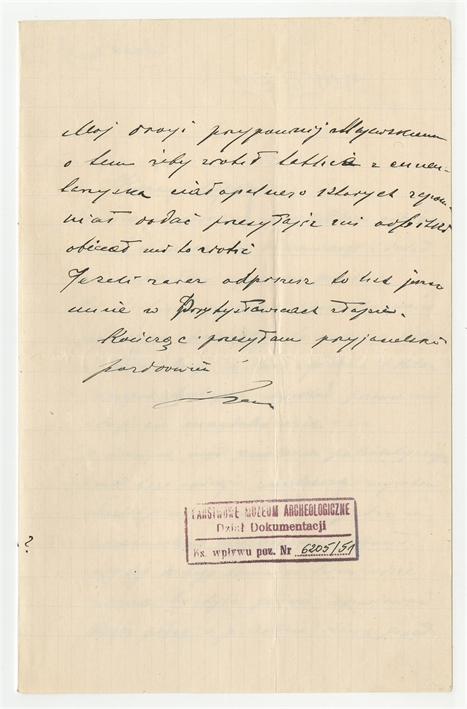 Mój drogi przypomnij Majewskiemu
o tem żeby zrobił z cmen-
tarzyska ciałopalnego których zapom-
niał dodać przesyłając mi odbitki
obiecał mi to zrobić
Jeżeli zaraz odpiszesz to list jeszcze
mnie w Przybysławicach złapie.
Kończąc przesyłam przyjacielskie
pozdrowienia
PAŃSTWOWE MUZEUM ARCHEOLOGICZNE
Dział Dokumentacji
Ks. wpływu poz. Nr 6205/51
?